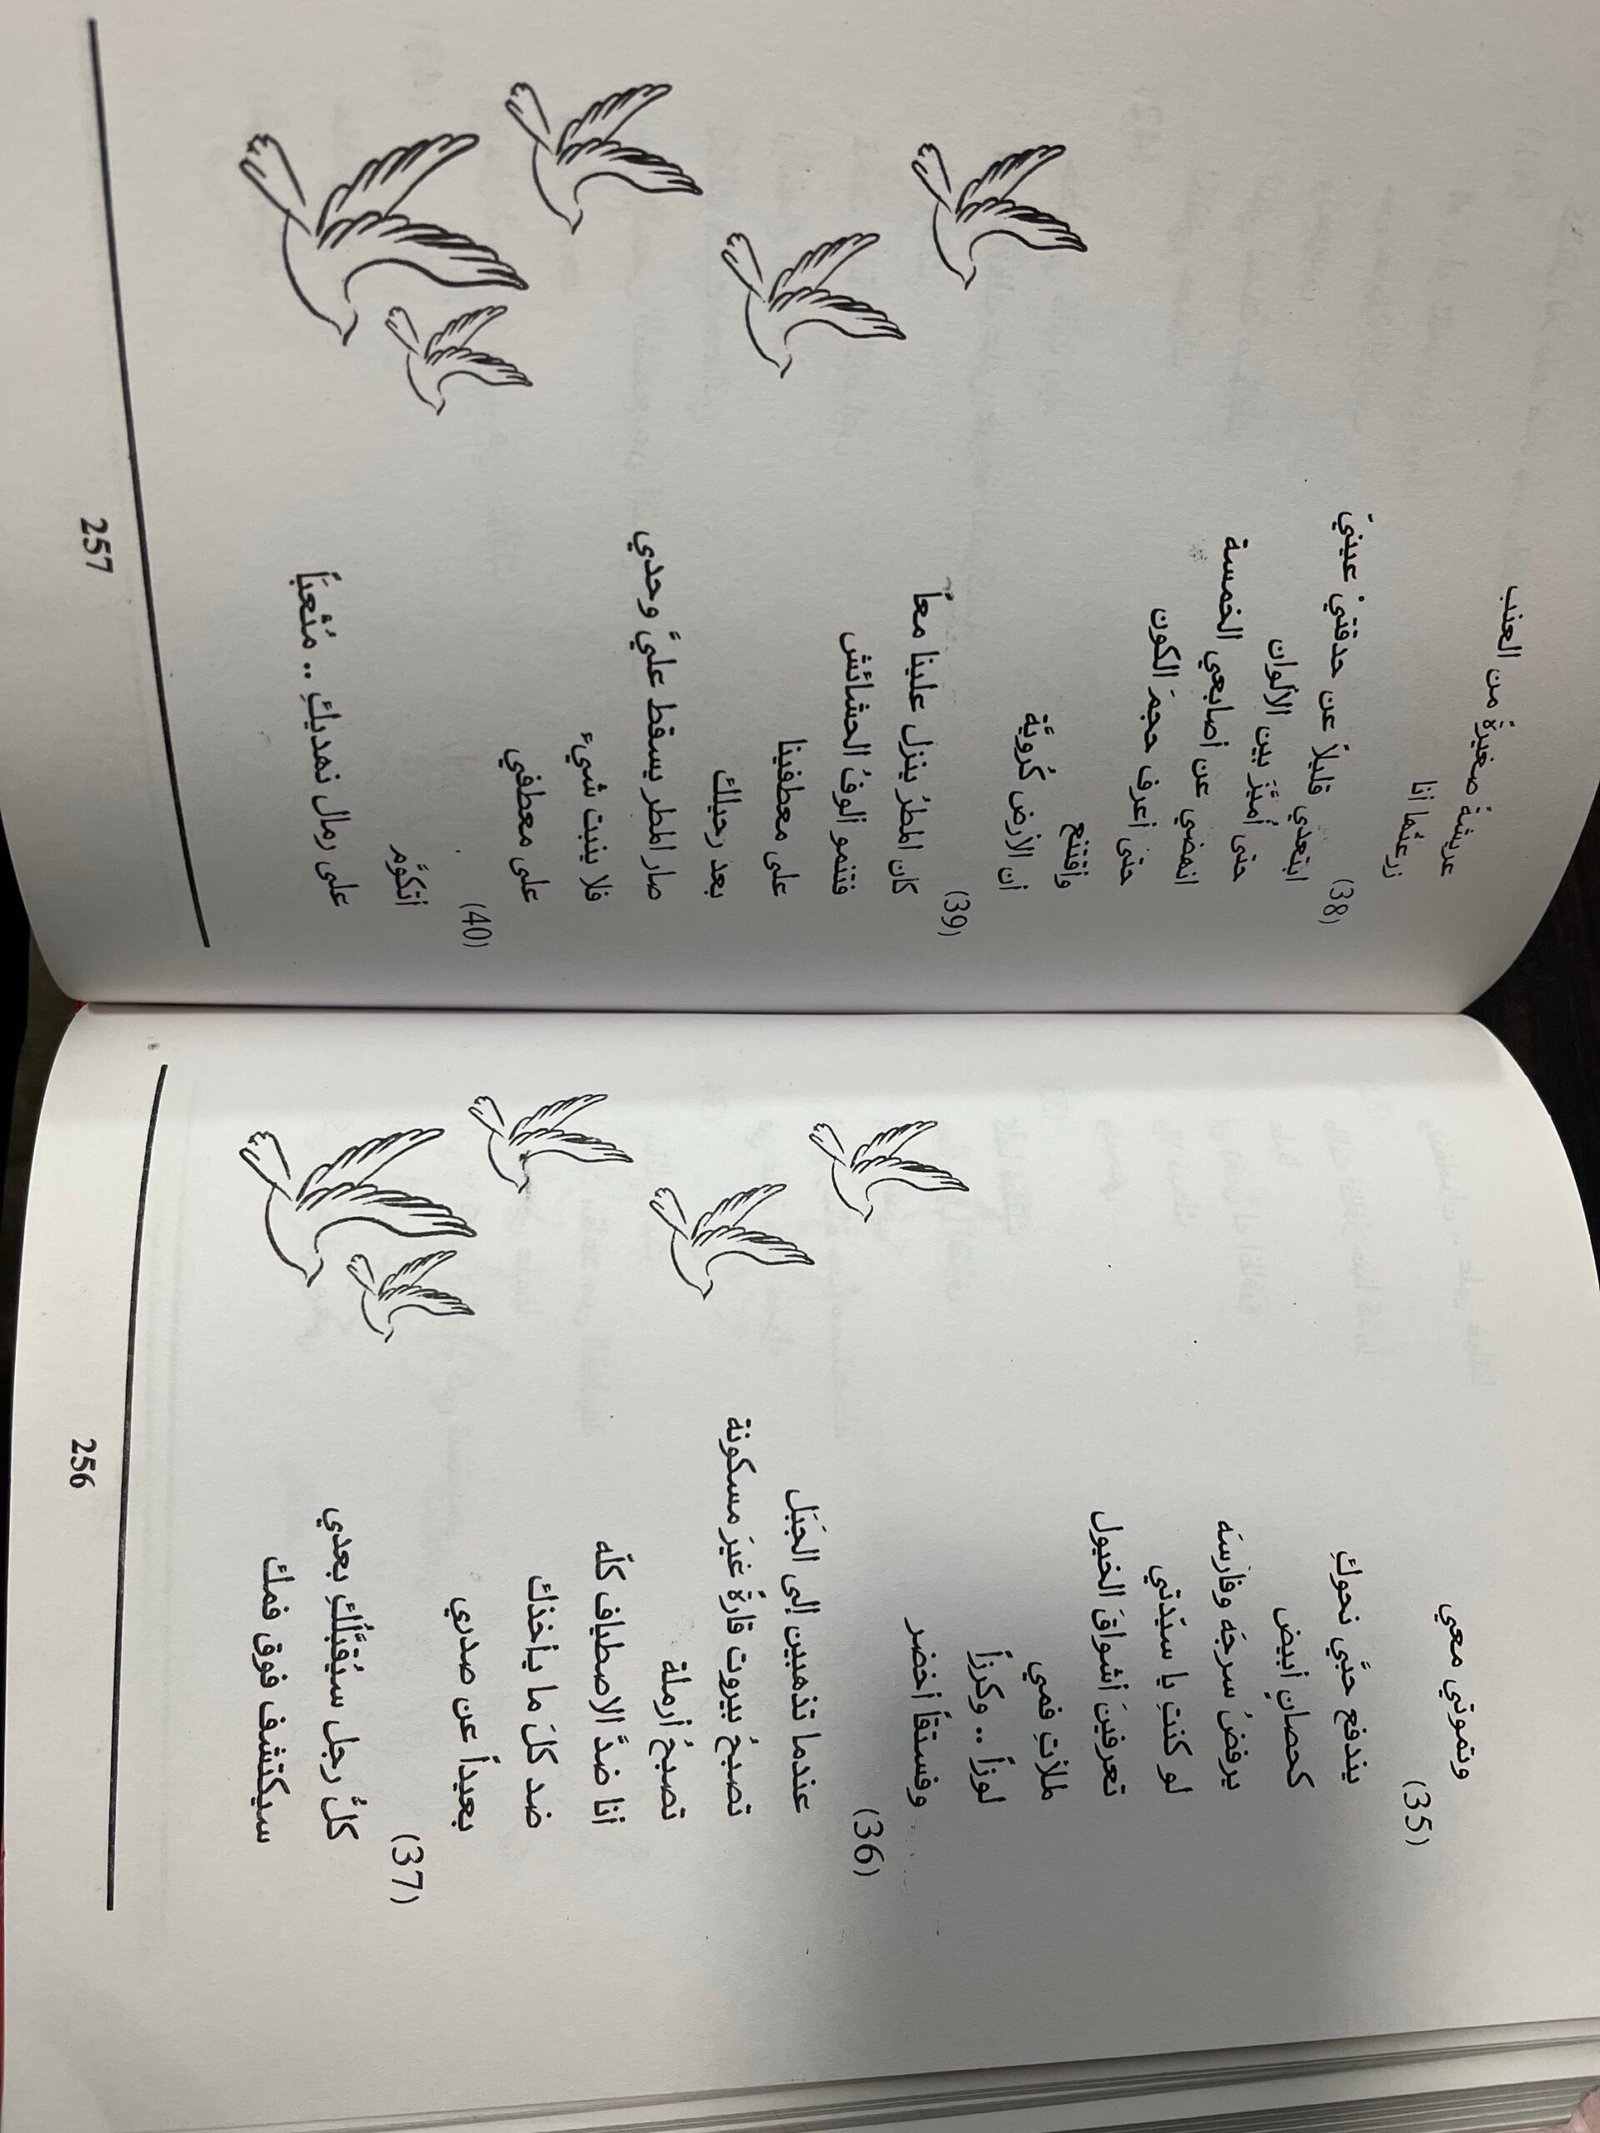 وتموتي معي
(35)
يندفع حبّي نحوكِ
كحصانٍ أبيض
يرفضُ سرجَه وفارسَه
لو كنتِ يا سيّدتي
تعرفينَ أشواقَ الخيول
لملأتِ فمي
لوزاً .. وكرزاً
وفستقاً أخضر
(36)
عندما تذهبين إلى الجَبَل
تصبحُ بيروت قارةً غيرَ مسكونة
تصبحُ أرملة
أنا ضدَّ الاصطياف كلّه
ضد كلَ ما يأخذك
بعيداً عن صدري
(37)
كلُّ رجل سيُقبَّلُكِ بعدي
سيكتشف فوق فمك
256
عريشةً صغيرةً من العنب
زرعتُها أنا
(38)
ابتعدي قليلاً عن حدقتيْ عينيَ
حتى أُميّزَ بين الألوان
انهضي عن أصابعي الخمسة
حتى أعرف حجمَ الكون
وأقتنع
أن الأرض كُرويَّة
(39)
كان المطرُ ينزل علينا معاً
فتنمو ألوفُ الحشائش
على معطفينا
بعد رحيلك
صار المطر يسقط عليَّ وحدي
فلا ينبت شيء
على معطفي
(40)
أتكوَّم
على رمال نهديكِ .. مُتْعبَاً
257